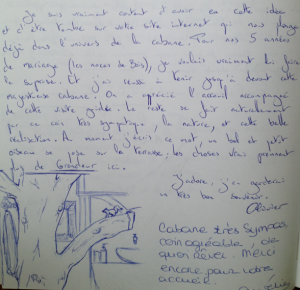 Je suis vraiment content d'avoir eu cette idée
et d'être tombé sur votre site internet qui nous plonge
déjà dans l'univers de la cabane. Pour nos 5 années
de mariage (les noces de Bois), je voulais vraiment lui faire
la surprise. Et j'ai réussi à tenir jusqu'à devant cette
majestueuse cabane. On a apprécié l'accueil accompagné
de cette visite guidée. Le reste se fait naturellement
car très sympathique, la nature, et cette belle
réalisation. Au moment j'écris ce mot, un bel et petit
oiseau se pose sur la terrasse, les choses vraies prennent
de Grandeur ici.
J'adore, j'en garderai
un très bon souvenir.
Olivier
Cabane très sympas
Merci
encore pour votre
accueil.